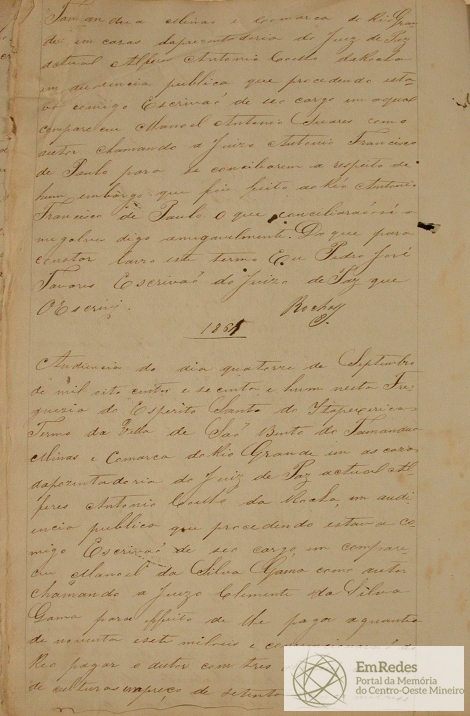 Tamandua Minas e Comarca do Rio Gran
de em casas daprezentadoria do Juiz de Paz
actual Alferes Antonio Coelho da Rocha
em audiencia publica que procedendo esta-
va comigo Escrivaõ de seo cargo em a qual
compareceu Manoel Antonio Soares como
autor chamando a Juizo Antonio Francisco
de Paulo para se conciliarem a respeito de
hum embargo que foi feito ao Réo Antonio
Francisco de Paulo o que conciliaraõ-se a
migalveu digo amigavelmente. Do que para
constar lavro este termo Eu Pedro José
Tavares Escrivaõ do Juizo de Paz que
O Escrivi.
Rocha
1861
Audiencia do dia quatorze de Septembro
de mil oito centos e secenta e hum nesta Fre-
guezia do Espirito Santo do Itapexirica
Termo da Villa de Saõ Bento do Tamandua
Minas e Comarca do Rio Grande em as cazas
daprezentadoria do Juiz de Paz actual Al-
feres Antonio Coelho da Rocha, em audi-
encia publica que procedendo estava co-
migo Escrivaõ de seo cargo, em compare-
ceu Manoel da Silva Gama como autor
chamando a Juizo Clemente da Silva
Gama para effeito de lhe pagar a quantia
de noventa e sete milreis e
Réo pagar o autor com tres
de culturas em preço de setenta
EmRedes
Portal da Memória
do Centro-Oeste Mineiro